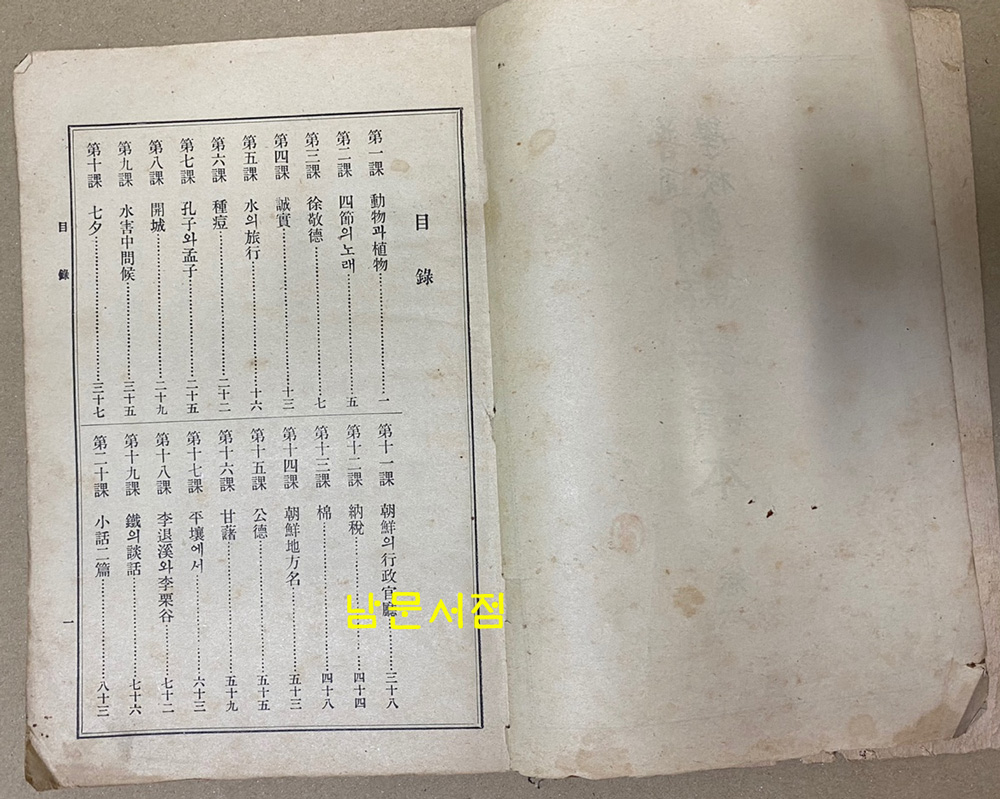 目錄
第一課 動物과植物 一
第二課 四節의노래 五
第三課 徐敬德 七
第四課 誠實 十三
第五課 水의旅行 十六
第六課 種痘 二十二
第七課 孔子와孟子 二十五
第八課 開城 二十九
第九課 水害中問候 三十五
第十課 七夕 三十七
第十一課 朝鮮의行政官廳 三十八
第十二課 納稅 四十四
第十三課 棉 四十八
第十四課 朝鮮地方名 五十三
第十五課 公德 五十五
第十六課 甘藷 五十九
第十七課 平壤에서 六十三
第十八課 李退溪와李栗谷 七十二
第十九課 鐵의談話 七十六
第二十課 小話二篇 八十三
目錄 一
남문서점